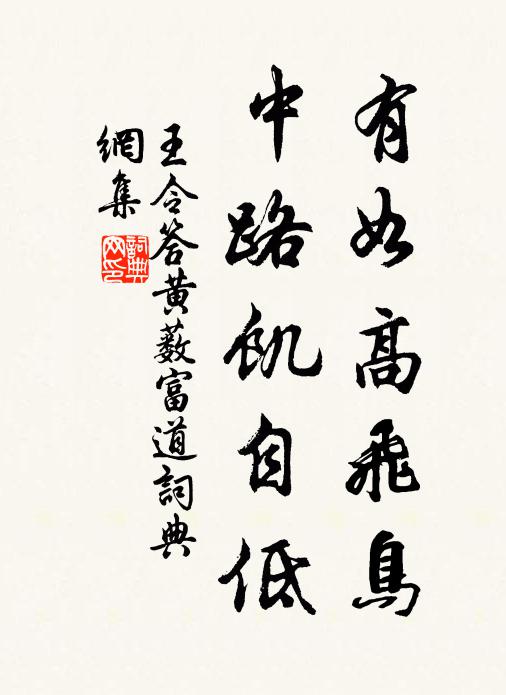 有如高飛鳥
中路飢自低
王令答黄藪富道詞典
網集
詞典
网印